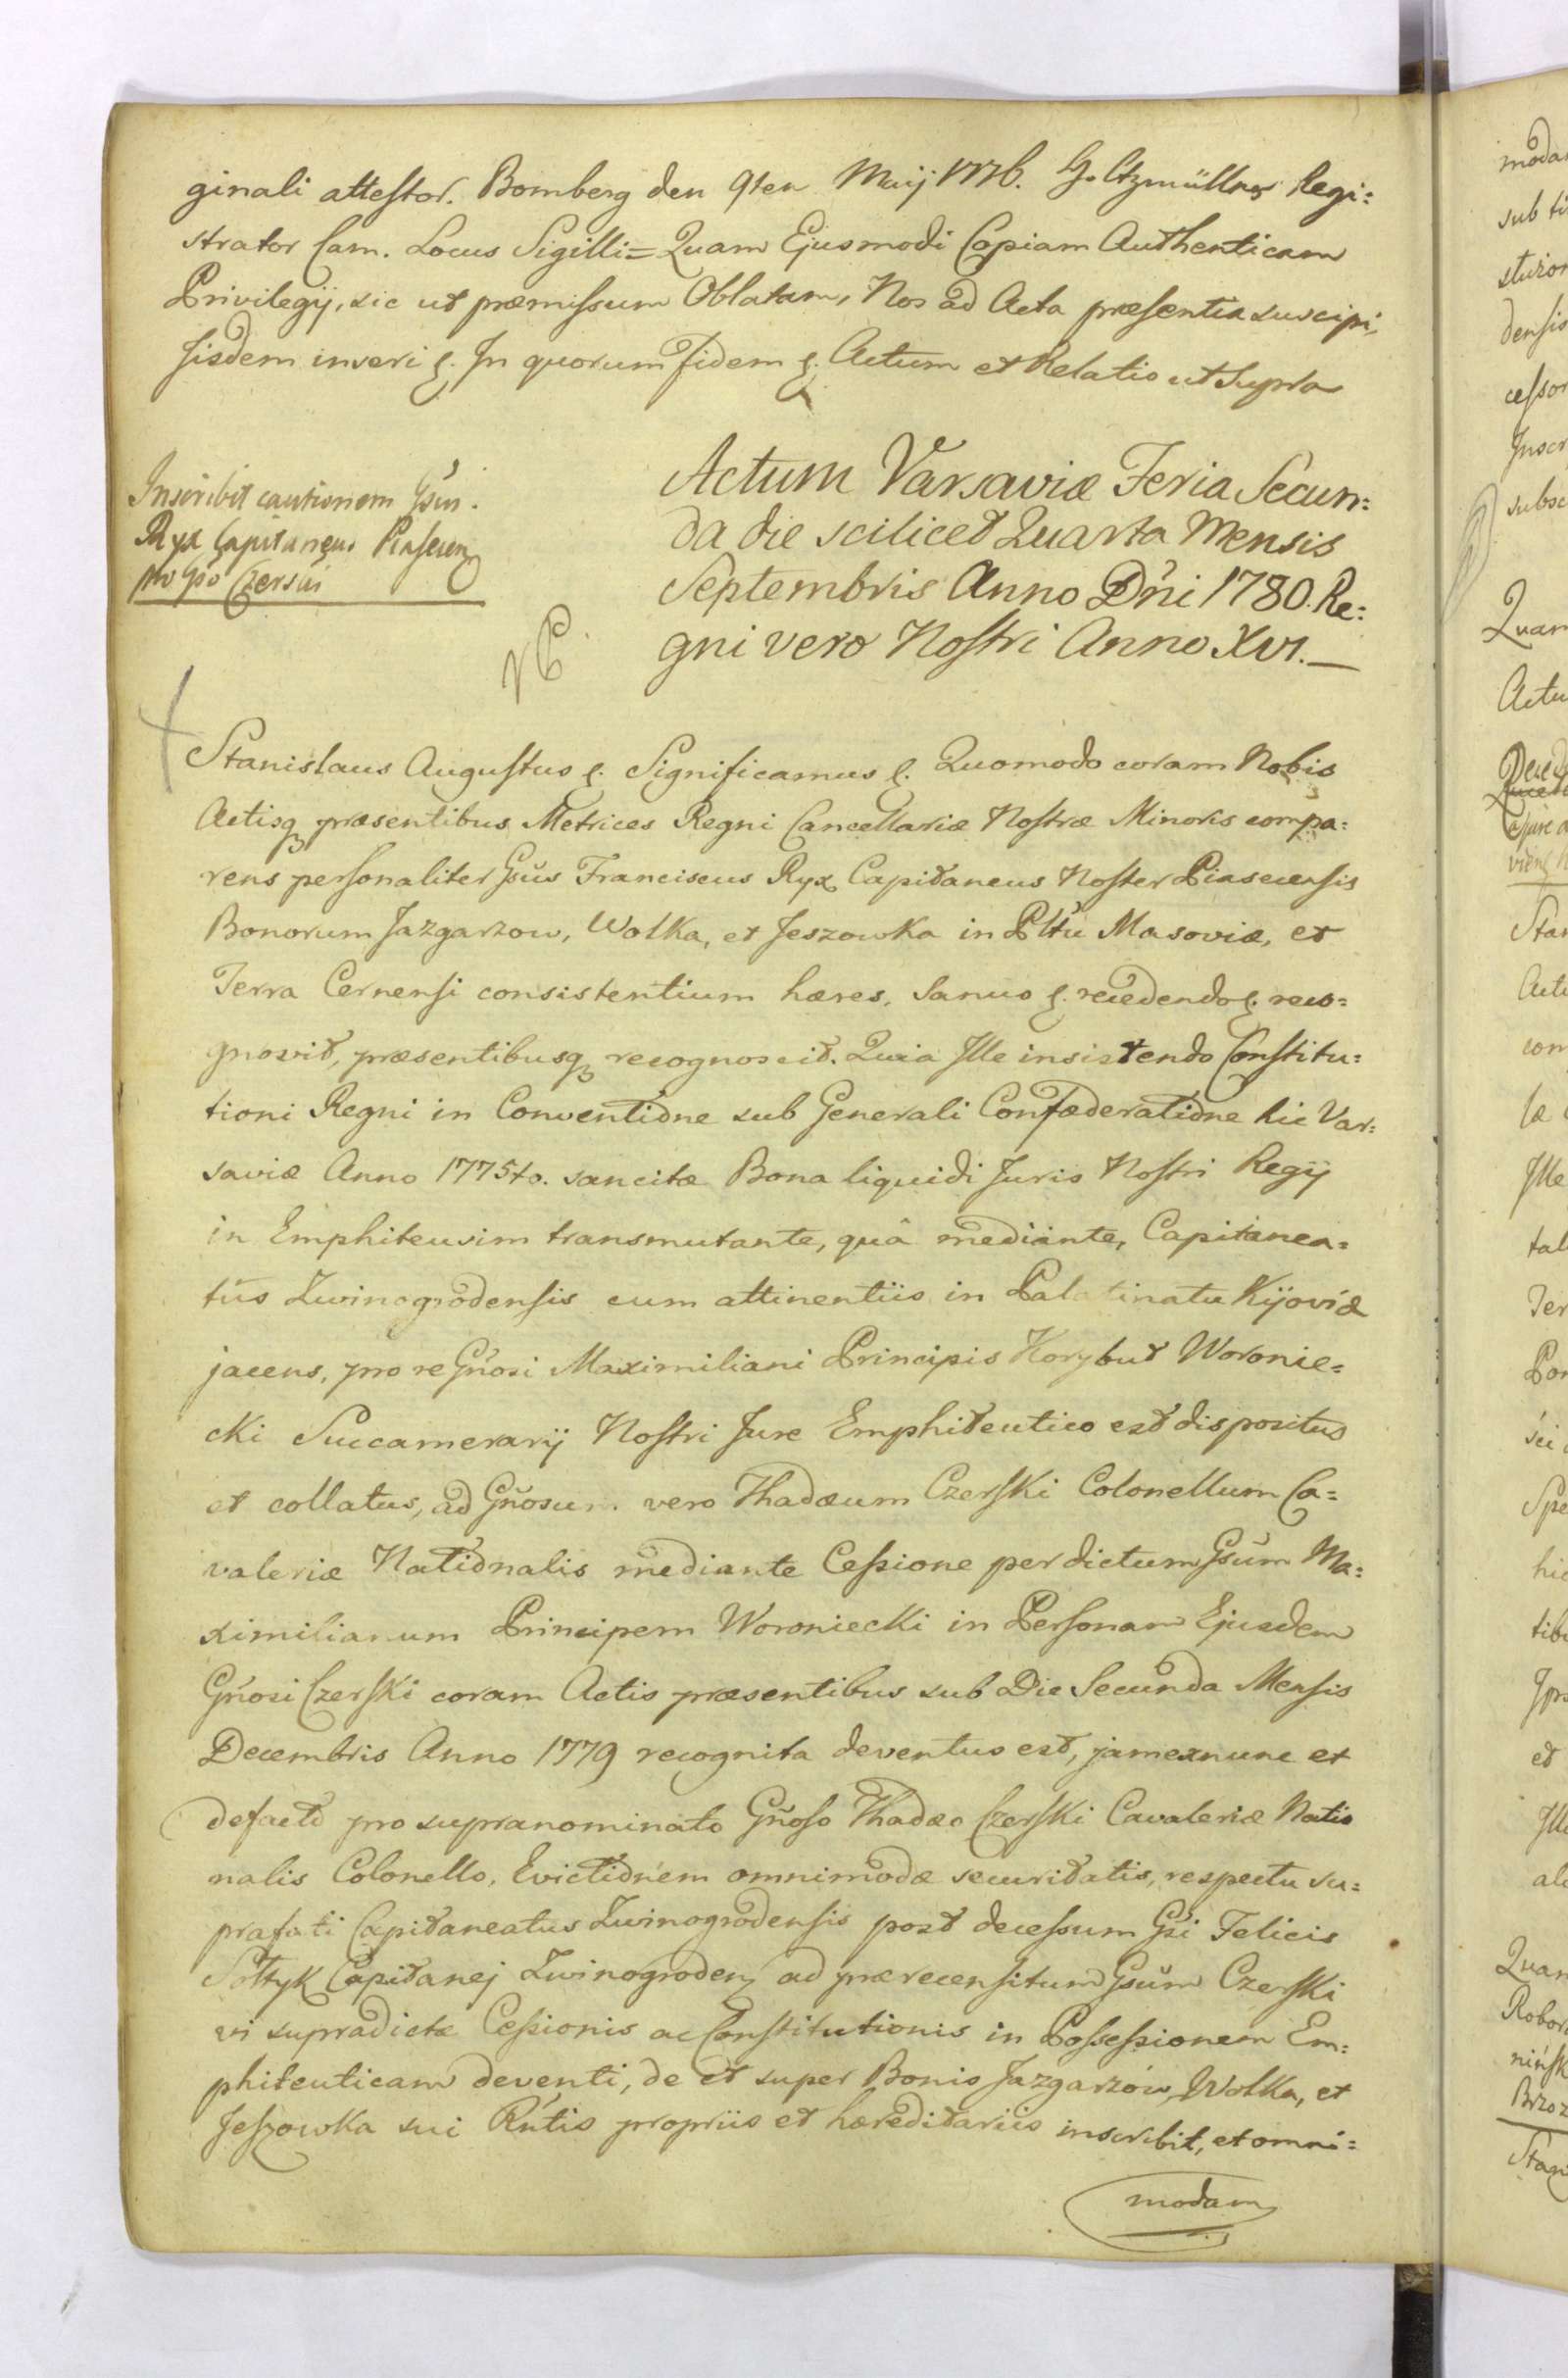 ginali attestor. Bomberg den 9ten Maij 1776. Regi:
strator Cam. Locus Sigilli = Quam Ejusmodi Copiam Authenticam
Privilegij, sic ut præmissum Oblatam, Nos ad Acta præsentia suscipi,
Jisdem inseri &. In quorum Fidem &. Actum et Relatio ut Supra
Inscribit cautionem Gsus.
Ryx Capitaneus Piasecen
pro Gso Czerski
Actum Varsaviæ Feria Secun:
da die scilicet Quarta Mensis
Septembris Anno Dni 1780. Re:
gni vero Nostri Anno XVI.—
Stanislaus Augustus &. Significamus &. Quomodo coram Nobis
Actisq præsentibus Metrices Regni Cancellariæ Nostræ Minoris compa:
rens personaliter Gsus Franciscus Ryx Capitaneus Noster Piasecensis
Bonorum Jazgarzow, Wolka, et Jeszowka in Pltu Masoviæ, et
Terra Cernensi consistentium hæres, Sanus &. recedendo &. reco:
gnovit, præsentibusq recognoscit. Quia Ille insistendo Constitu:
tioni Regni in Conventione sub Generali Confæderatione hic Var:
saviæ Anno 1775to. sancitæ Bona liquidi Juris Nostri Regij
in Emphiteusim transmutante, quâ mediante, Capitanea:
tus Zwinogrodensis cum attinentiis in Palatinatu Kijoviæ
jacens, pro re Gnosi Maximiliani Principis Korybut Woronie:
cki Succamerarij Nostri Jure Emphiteutico est dispositus
et collatus, ad Gnosum vero Thadæum Czerski Colonellum Ca:
valeriæ Nationalis mediante Cessione per dictum Gsum Ma:
ximilianum Principem Woroniecki in Personam Ejusdem
Gnosi Czerski coram Actis præsentibus sub Die Secunda Mensis
Decembris Anno 1779 recognita deventus est, jam exnunc et
defacto pro supranominato Gnoso Thadæo Czerski Cavaleriæ Natio
nalis Colonello, Evictionem omnimodæ securitatis, respectu su:
prafati Capitaneatus Zwinogrodensis post decessum Gsi Felicis
Sołtyk Capitanej Zwinogroden ad præcensitum Gsum Czerski
vi supradictæ Cessionis ac Constitutionis in Possessionem Em:
phiteuticam deventi, de et super Bonis Jazgarzow, Wolka, et
Jeszowka sui Rntis propriis et hæreditariis inscribit, et omni:
modam